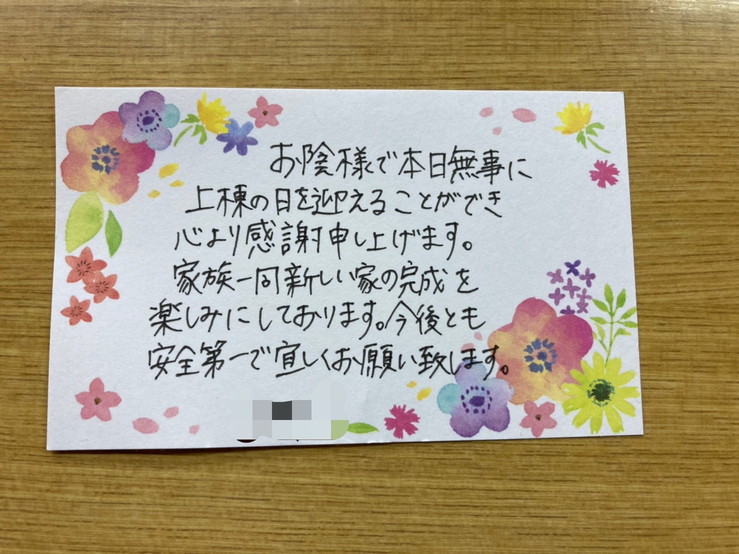 お陰様で本日無事に
上棟の日を迎えることができ
心より感謝申し上げます。
家族一同新しい家の完成を
楽しみにしております。今後とも
安全第一で宜しくお願い致します。